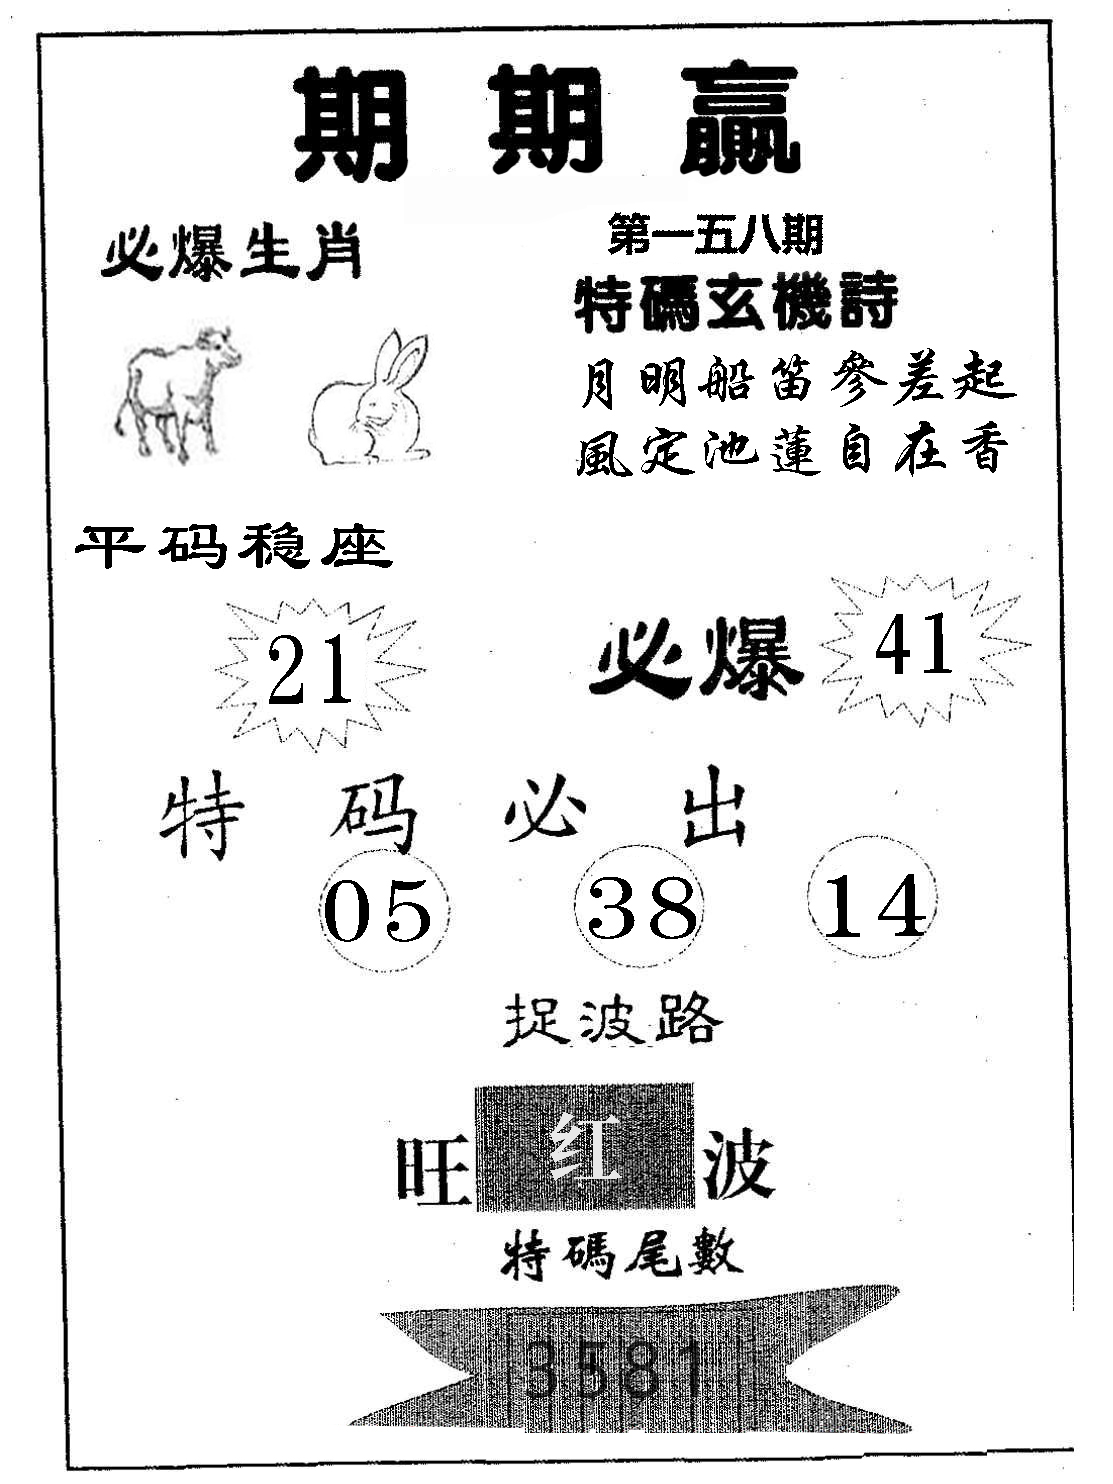 期期贏
必爆生肖
第一五八期
特碼玄機詩
月明船笛參差起
風定池蓮自在香
平码稳座
21
必爆 41
特码必出
05 38 14
捉波路
旺红波
特碼尾數
3581